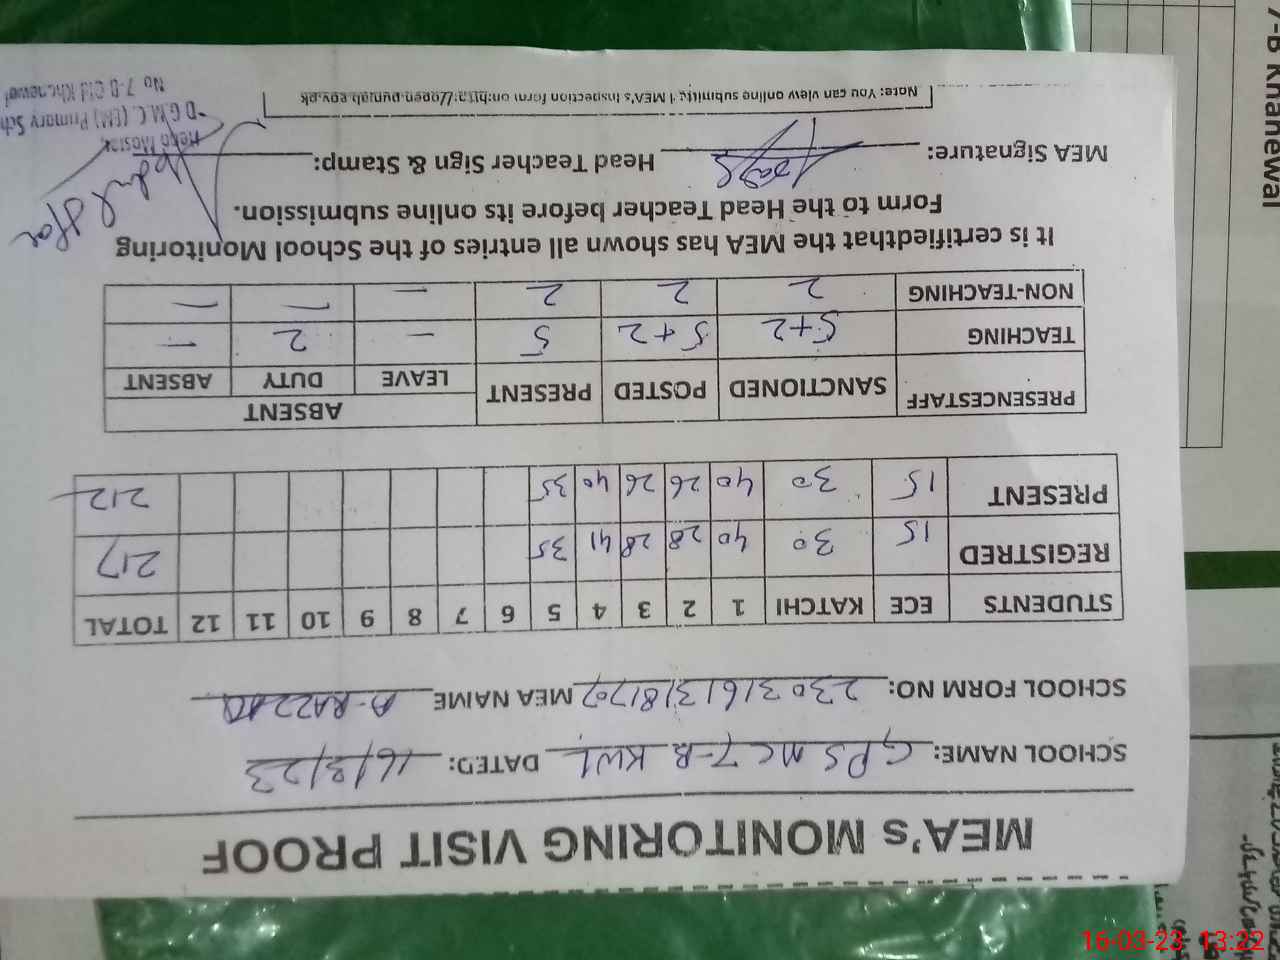 MEA's MONITORING VISIT PROOF
SCHOOL NAME: GPS MC 7-B KWL DATED: 16/3/23
SCHOOL FORM NO: MEA NAME A-RAZZAQ
STUDENTS ECE KATCHI 1 2 3 4 5 6 7 8 9 10 11 12 TOTAL
REGISTRED 15 30 40 28 28 41 35 217
PRESENT 15 30 40 26 26 40 35 212
PRESENCESTAFF SANCTIONED POSTED PRESENT ABSENT
LEAVE DUTY ABSENT
TEACHING 5+2 5+2 5 — 2 —
NON-TEACHING 2 2 2 — — —
It is certifiedthat the MEA has shown all entries of the School Monitoring
Form to the Head Teacher before its online submission.
MEA Signature: Head Teacher Sign & Stamp:
Note: You can view online submitted MEA's Inspection form on:http://open.punjab.gov.pk
Head Master
D.G.M.C. (EM) Primary Sch
No 7-B Old Khanewal
7-B Khanewal
16-03-23 13:22